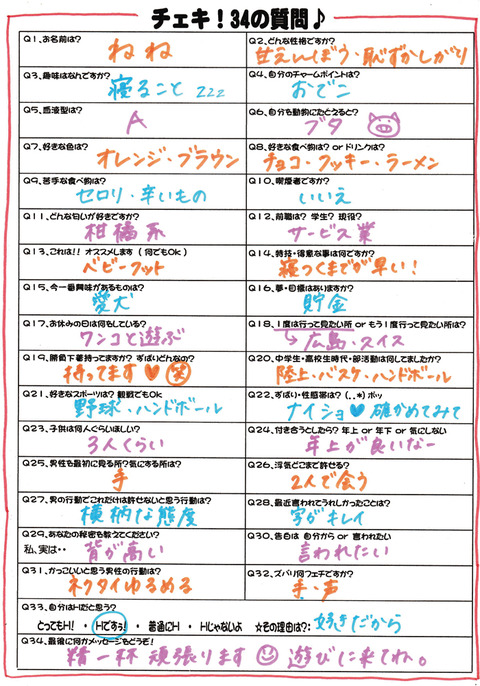 チェキ！34の質問♪
Q1、お名前は？
ねね
Q2、どんな性格ですか？
甘えんぼう・恥ずかしがり
Q3、趣味はなんですか？
寝ること zzz
Q4、自分のチャームポイントは？
おでこ
Q5、血液型は？
A
Q6、自分を動物にたとえると？
ブタ
Q7、好きな色は？
オレンジ・ブラウン
Q8、好きな食べ物は？ or ドリンクは？
チョコ・クッキー・ラーメン
Q9、苦手な食べ物は？
セロリ・辛いもの
Q10、喫煙者ですか？
いいえ
Q11、どんな匂いが好きですか？
柑橘系
Q12、前職は？ 学生？ 現役？
サービス業
Q13、これは！！オススメします（何でもOk）
ベビーフット
Q14、特技・得意な事は何ですか？
寝つくまでが早い！
Q15、今一番興味があるものは？
愛犬
Q16、夢・目標はありますか？
貯金
Q17、お休みの日は何をしている？
ワンコと遊ぶ
Q18、1度は行って見たい所 or もう1度行って見たい所は？
↳広島・スイス
Q19、勝負下着持ってますか？ ずばりどんなの？
持ってます♥ 笑
Q20、中学生・高校生時代・部活動は何してましたか？
陸上・バスケ・ハンドボール
Q21、好きなスポーツは？ 観戦でもOK
野球・ハンドボール
Q22、ずばり・性感帯は？（．．*）ポッ
ナイショ♥確かめてみて
Q23、子供は何人ぐらいほしい？
3人くらい
Q24、付き合うとしたら？ 年上 or 年下 or 気にしない
年上が良いなー
Q25、男性を最初に見る所？気にする所は？
手
Q26、浮気どこまで許せる？
2人で会う
Q27、男の行動でこれだけは許せないと思う行動は？
横柄な態度
Q28、最近言われてうれしかったことは？
字がキレイ
Q29、あなたの秘密を教えてください？
私、実は・・ 背が高い
Q30、告白は 自分から or 言われたい
言われたい
Q31、かっこいいと思う男性の行動は？
ネクタイゆるめる
Q32、ズバリ何フェチですか？
手・声
Q33、自分はHだと思う？
とってもH！ ・ Hですぅ！ ・ 普通にH ・ Hじゃないよ ☆その理由は？：好きだから
Q34、最後に何かメッセージをどうぞ！
精一杯 頑張ります 遊びに来てね。